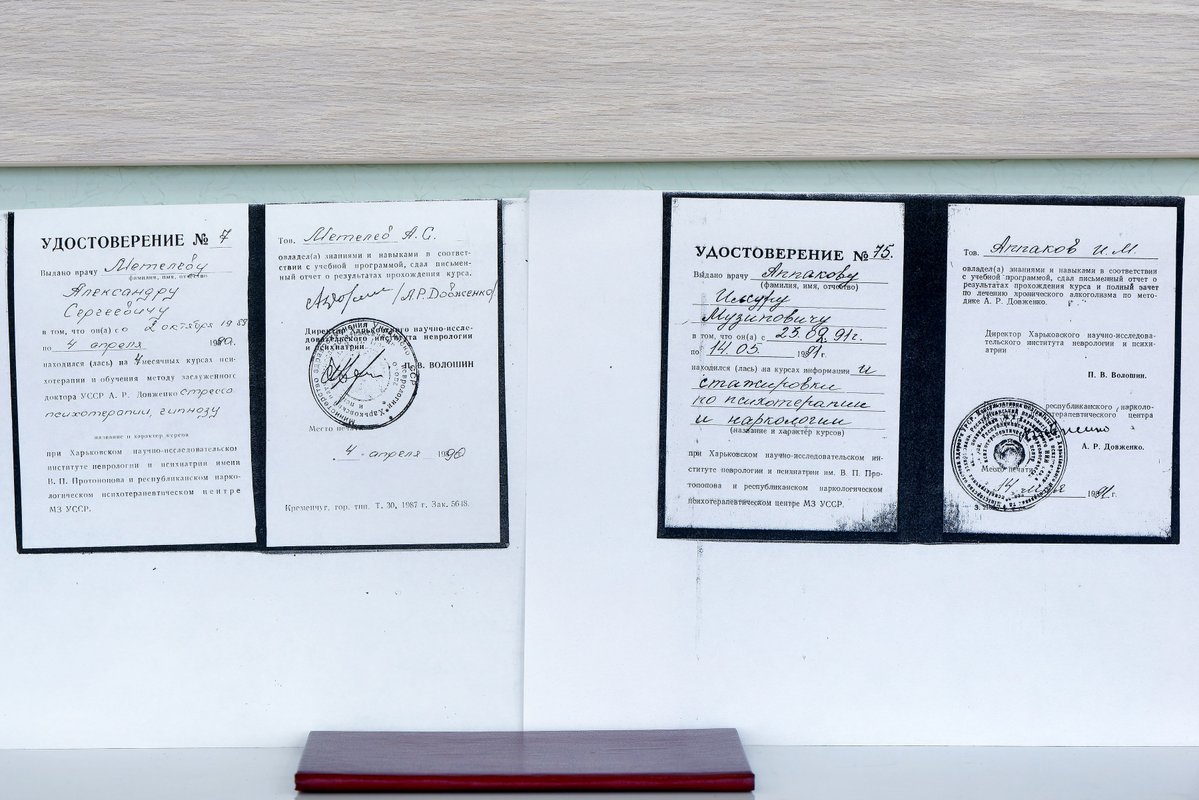 УДОСТОВЕРЕНИЕ № 7
Выдано врачу Метелеву
фамилия, имя, отчество
Александру
Сергеевичу
в том, что он(а) с 2 октября 1989
по 4 апреля 1990.
находился (лась) на 4 месячных курсах пси-
хотерапии и обучения методу заслуженного
доктора УССР А. Р. Довженко стрессо
психотерапии, гипнозу
название и характер курсов
при Харьковском научно-исследовательском
институте неврологии и психиатрии имени
В. П. Протопопова и республиканском нарко-
логическом психотерапевтическом центре
МЗ УССР.
Тов. Метелев А.С.
овладел(а) знаниями и навыками в соответ-
ствии с учебной программой, сдал письмен-
ный отчет о результатах прохождения курса.
/А.Р.Довженко/
Директор Харьковского научно-иссле-
довательского института неврологии
и психиатрии
П. В. ВОЛОШИН
Место печати
4 апреля 1990
Кременчуг, гор. тип. Т. 30, 1987 г. Зак. 5648.
УДОСТОВЕРЕНИЕ № 75.
Выдано врачу Аппакову
(фамилия, имя, отчество)
Музиповичу
в том, что он(а) с 23.02.91г.
по 14.05. 1991 г.
находился (лась) на курсах информации и
стажировки
по психотерапии
и наркологии
(название и характер курсов)
при Харьковском научно-исследовательском ин-
ституте неврологии и психиатрии им. В. П. Про-
топопова и республиканском наркологическом
психотерапевтическом центре МЗ УССР.
Тов. Аппаков И.М
овладел(а) знаниями и навыками в соответствии
с учебной программой, сдал письменный отчет о
результатах прохождения курса и полный зачет
по лечению хронического алкоголизма по мето-
дике А. Р. Довженко.
Директор Харьковского научно-исследова-
тельского института неврологии и психи-
атрии
П. В. Волошин.
республиканского нарколо-
центра
А. Р. Довженко.
Место печати
14 1991 г.